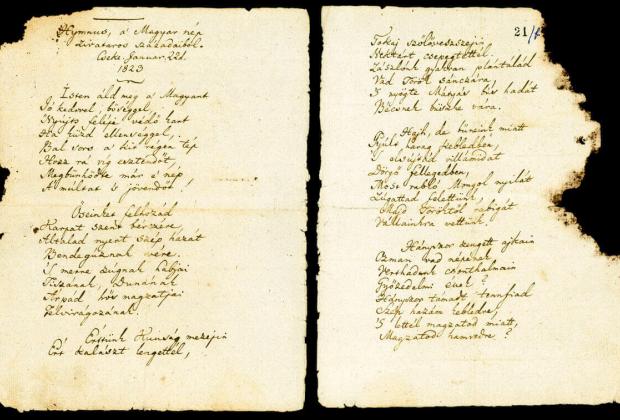 Hymnus, a Magyar nép
zivataros századaiból.
Cseke, Januar. 22d.
1823
Isten áldd meg a Magyart
Jó kedvvel, bőséggel,
Nyújts feléje védő kart
Ha küzd ellenséggel;
Bal sors a kit régen tép
Hozz rá víg esztendőt,
Megbűnhődte már e nép
A múltat 's jövendőt!
Őseinket felhozád
Kárpát szent bérczére,
Általad nyert szép hazát
Bendegúznak vére.
'S merre zúgnak habjai
Tiszának, Dunának
Árpád hős magzatjai
Felvirágozának.
Értünk Kunság mezejin
Ért kalászt lengettél,
21
Tokaj szőlővesszejin
Nektárt csepegtettél.
Zászlónk gyakran plántálád
Vad Török sánczára,
'S nyögte Mátyás bús hadát
Bécsnek büszke vára.
Hajh, de bűneink miatt
Gyúlt harag kebledben,
'S elsújtád villámidat
Dörgő fellegedben,
Most rabló Mongol nyilát
Zúgattad felettünk,
Majd Töröktől rabigát
Vállainkra vettünk.
Hányszor zengett ajkain
Ozman vad népének
Vert hadunk csonthalmain
Győzedelmi ének!
Hányszor támadt tenn fiad
Szép hazám kebledre,
'S lettél magzatod miatt,
Magzatod hamvvedre?